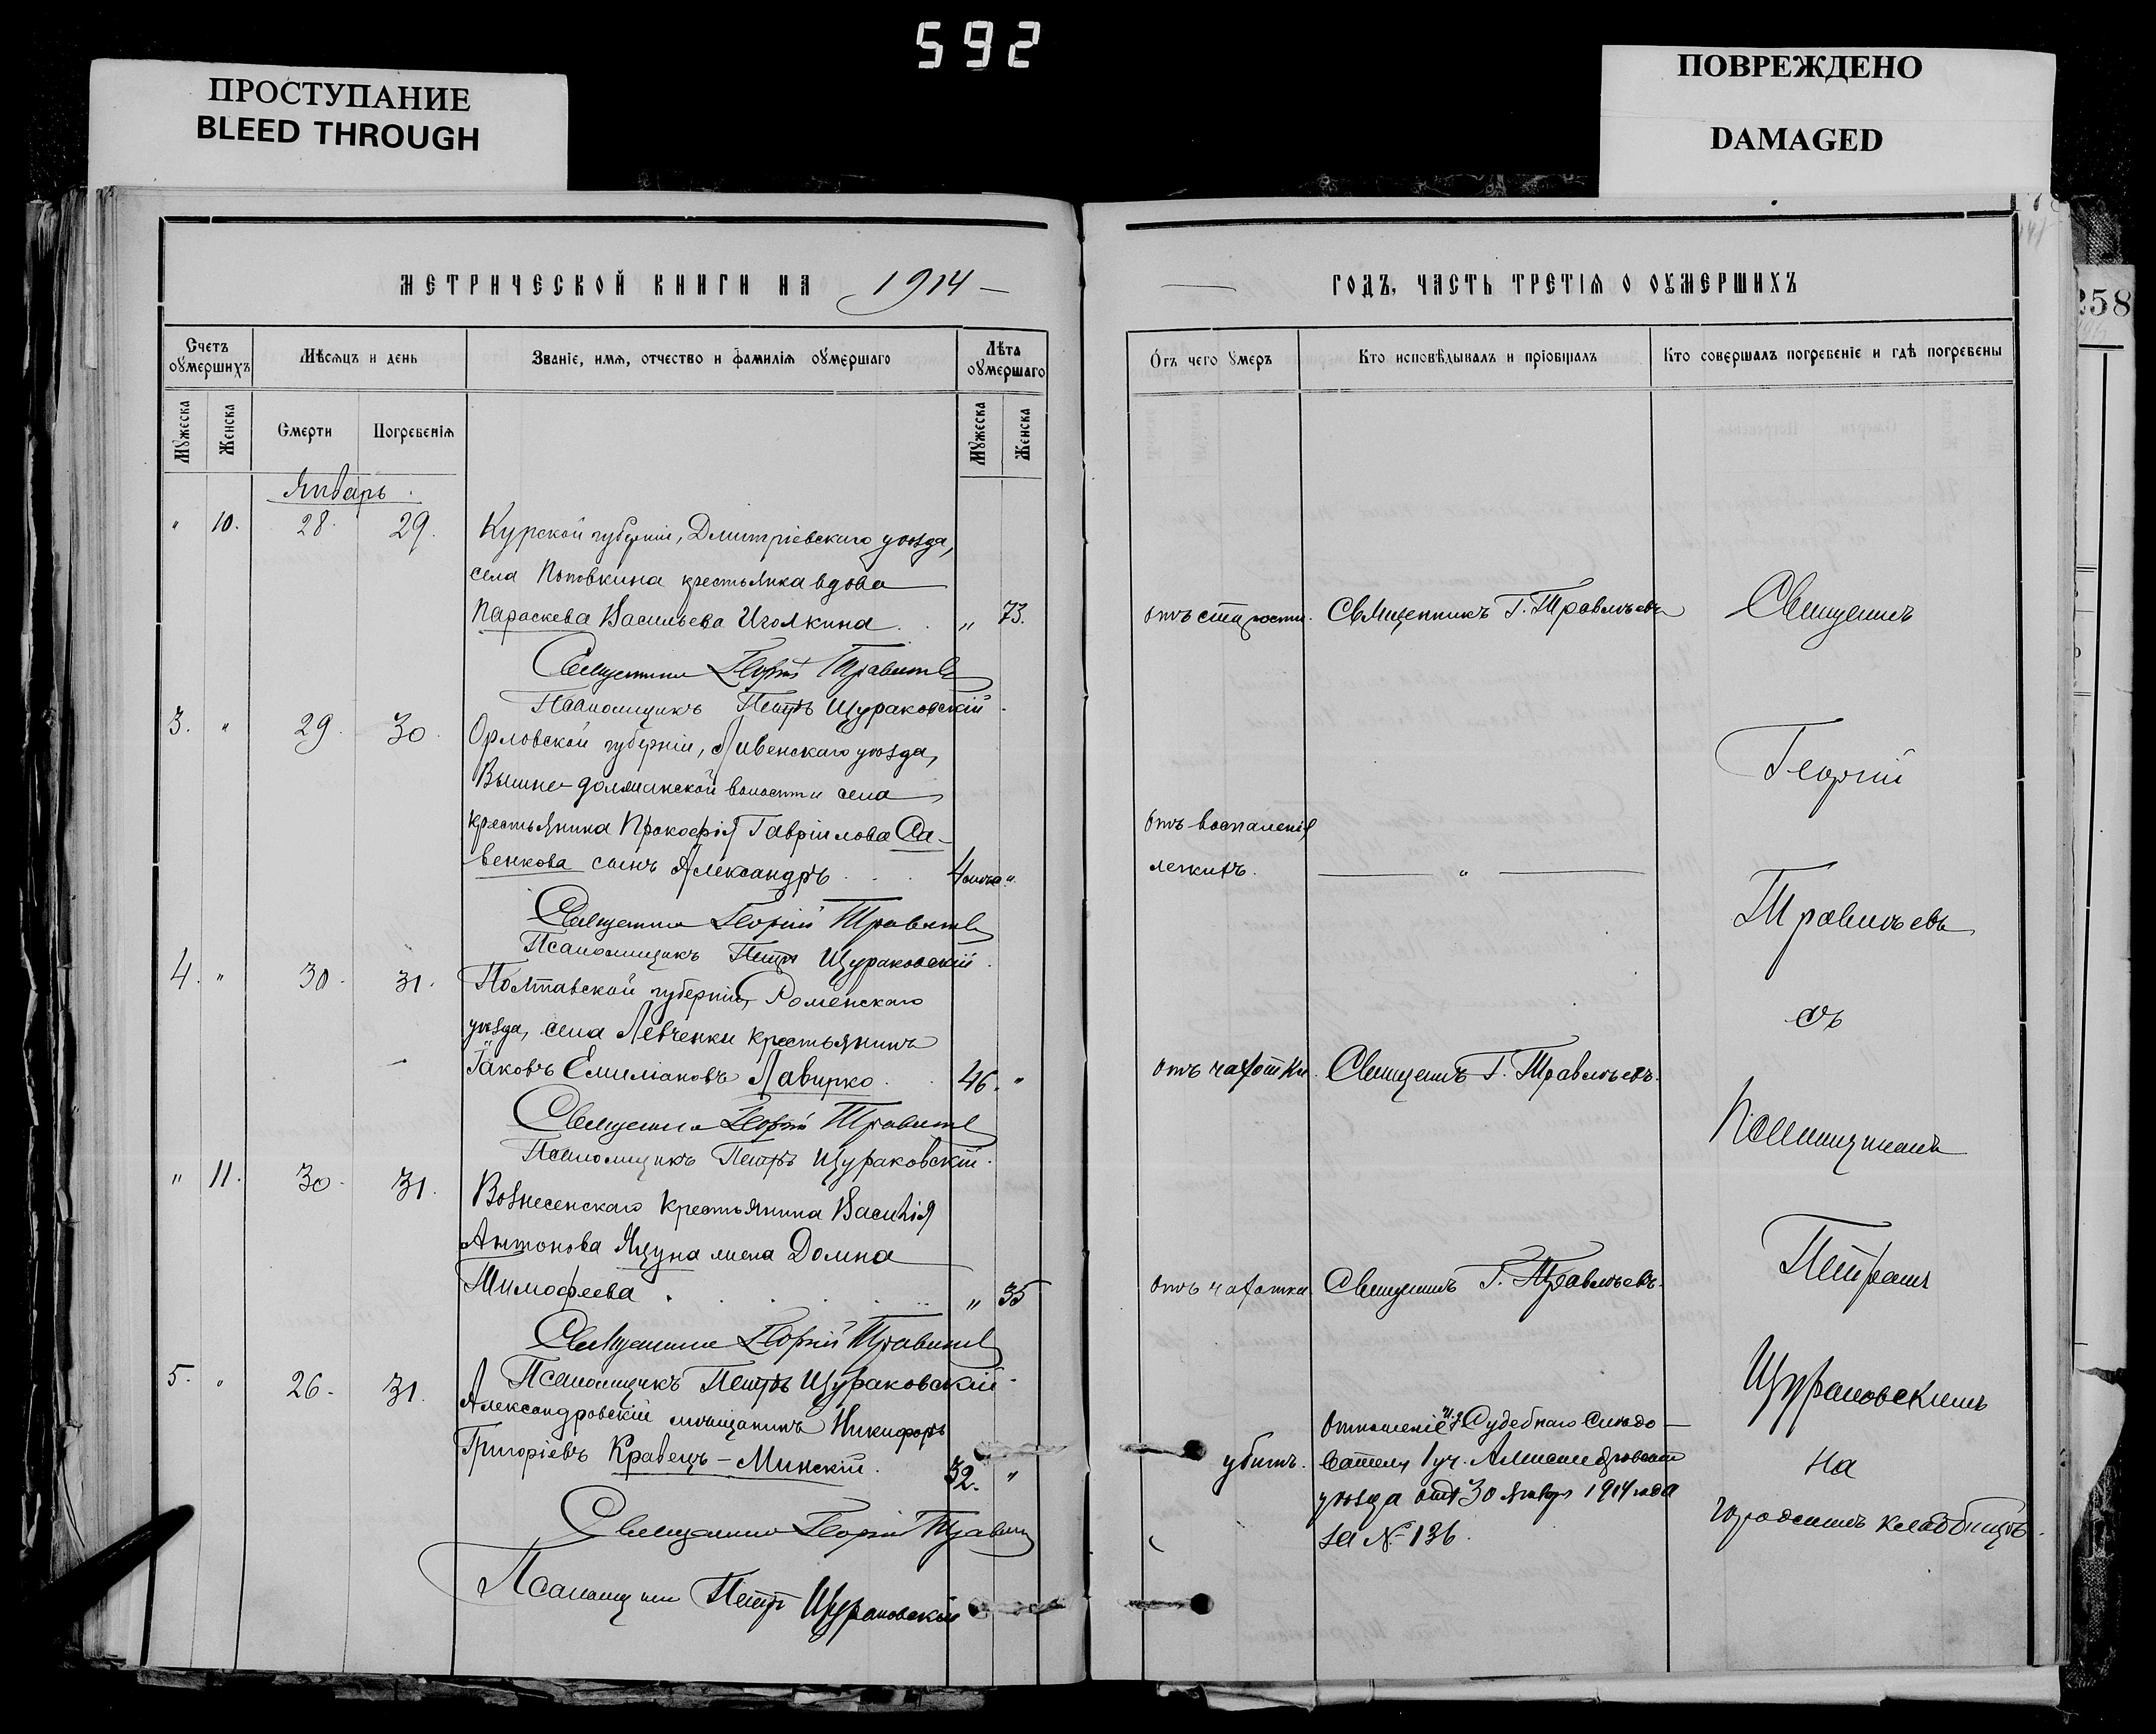 592
ПРОСТУПАНИЕ
BLEED THROUGH
ПОВРЕЖДЕНО
DAMAGED
258
МЕТРИЧЕСКОЙ КНИГИ НА 1914
Счетъ оумершихъ
Мѣсяцъ и день
Званіе, имя, отчество и фамилія оумершаго
Лѣта оумершаго
Мужеска
Женска
Смерти
Погребенія
Мужеска
Женска
Январь.
" 10. 28. 29. Курской губерніи, Дмитріевскаго уѣзда,
села Поповкина крестьянка вдова
Параскева Васильева Иголкина . . " 73.
Священникъ Георгій Травлѣевъ
Псаломщикъ Петръ Щураковскій.
3. " 29. 30. Орловской губерніи, Ливенскаго уѣзда,
волости села
крестьянина Прокофія Гавріилова Са-
венкова сынъ Александръ . . . 4 мѣс. "
Священникъ Георгій Травлѣевъ
Псаломщикъ Петръ Щураковскій.
4. " 30. 31. Полтавской губерніи, Роменскаго
уѣзда, села Левченки крестьянинъ
Іаковъ Емиліановъ Лавирко . . 46. "
Священникъ Георгій Травлѣевъ
Псаломщикъ Петръ Щураковскій.
" 11. 30. 31. Вознесенскаго крестьянина Василія
Антонова Яцуна жена Домна
Тимофеева . . . . " 35
Священникъ Георгій Травлѣевъ
Псаломщикъ Петръ Щураковскій.
5. " 26. 31. Александровскій мѣщанинъ Никифоръ
Григоріевъ Кравецъ-Минскій. 32. "
Священникъ Георгій Травлѣевъ
Псаломщикъ Петръ Щураковскій
ГОДЪ, ЧАСТЬ ТРЕТІЯ О ОУМЕРШИХЪ
Отъ чего умеръ
Кто исповѣдывалъ и пріобщалъ
Кто совершалъ погребеніе и гдѣ погребены
отъ старости. Священникъ Г. Травлѣевъ
отъ воспаленія
легкихъ. "
отъ чахотки. Священникъ Г. Травлѣевъ.
отъ чахотки. Священникъ Г. Травлѣевъ.
убитъ. Отношеніе И. д. Судебнаго Слѣдо-
вателя 1 уч. Александровскаго
уѣзда отъ 30 января 1914 года
за № 136.
Священникъ
Георгій
Травлѣевъ
съ
Псаломщикомъ
Петромъ
Щураковскимъ
на
городскомъ кладбищѣ.